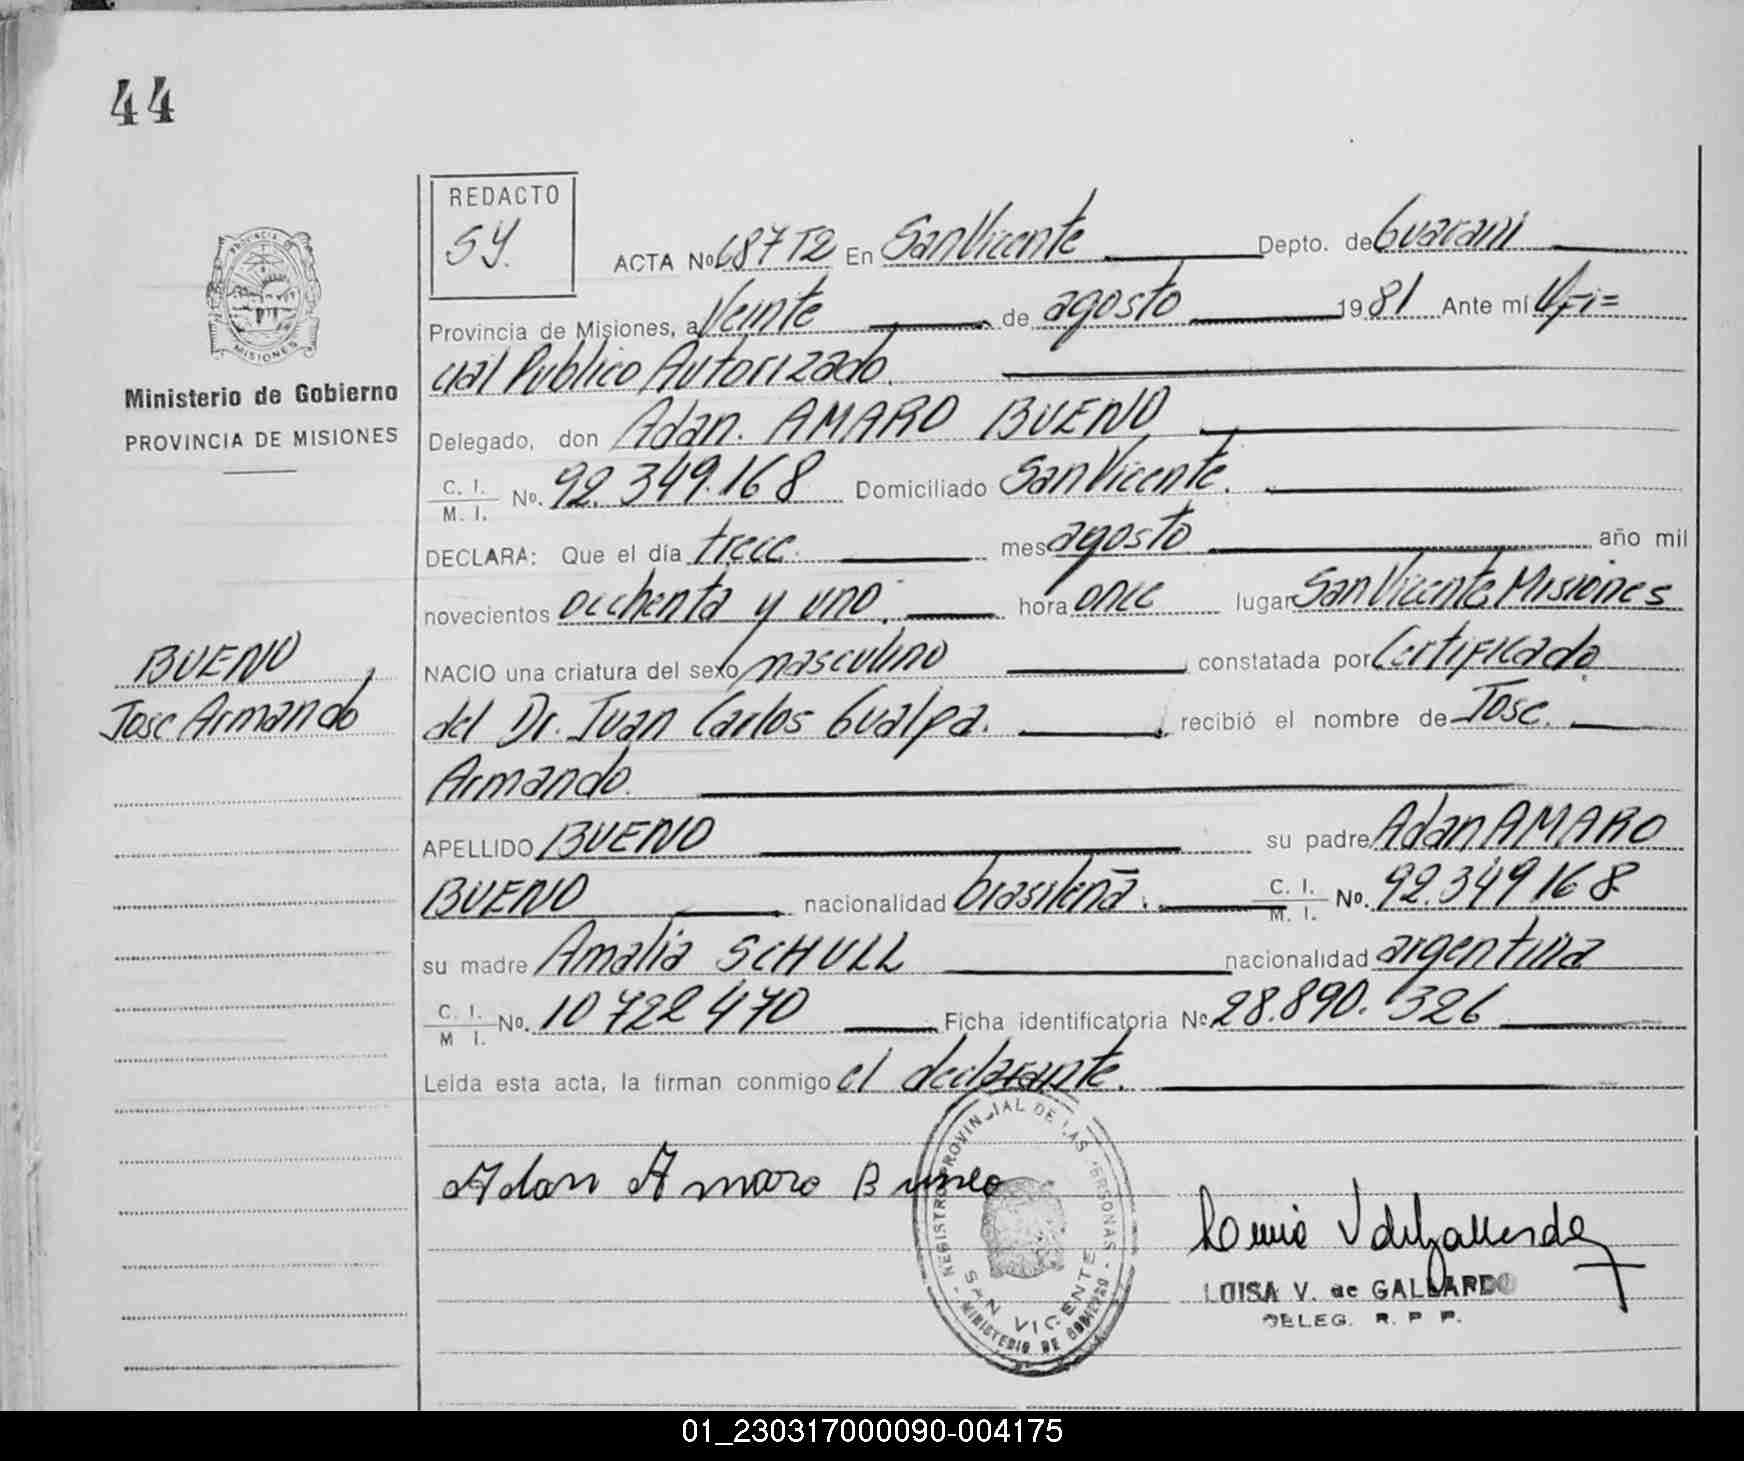 44
REDACTO
SY.
ACTA Nº 687 T2 En San Vicente Depto. de Guaraní
Provincia de Misiones, a Veinte de agosto 1981 Ante mí Ofi=
cial Público Autorizado.
Delegado, don Adan. AMARO BUENO
C. I. / M. I. No. 92.349.168 Domiciliado San Vicente.
DECLARA: Que el día trece. mes agosto año mil
novecientos occhenta y uno. hora once lugar San Vicente, Misiones
NACIO una criatura del sexo masculino, constatada por Certificado
del Dr. Juan Carlos Gualpa. , recibió el nombre de Jose.
Armando.
APELLIDO BUENO su padre Adan AMARO
BUENO nacionalidad brasileña. C. I. / M. I. No. 92.349168
su madre Amalia SCHULL nacionalidad argentina
C. I. / M I. No. 10722470 Ficha identificatoria Nº 28.890.326
Leida esta acta, la firman conmigo el declarante.
PROVINCIA DE
MISIONES
Ministerio de Gobierno
PROVINCIA DE MISIONES
BUENO,
Jose Armando
Adan Amaro Bueno
REGISTRO PROVINCIAL DE LAS PERSONAS
SAN VICENTE
MINISTERIO DE GOBIERNO
LUISA V. de GALLARDO
DELEG. R. P. P.
01_230317000090-004175